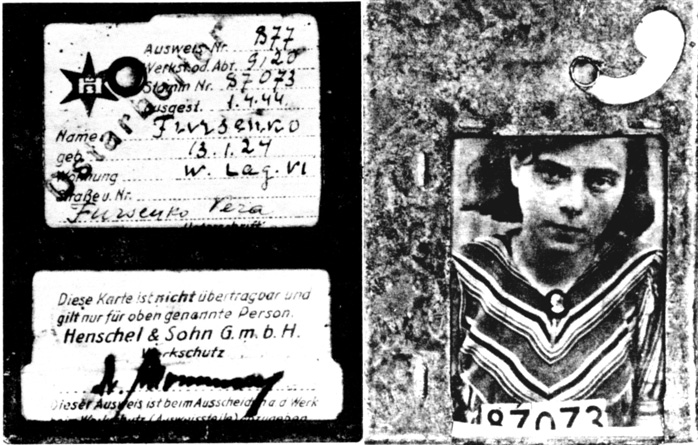 Ausweis Nr. 877
Werkshod. Abt. 9/20
Stamm Nr. 87073
Ausgest. 1.4.44.
Name Fursenko
geb. 13.1.24
Wohnung W. Lag. VI
Straße u. Nr.
Fursenko Vera
Unterschrift
Ostarbeiter
Diese Karte ist nicht übertragbar und
gilt nur für oben genannte Person.
Henschel & Sohn G.m.b.H.
Werkschutz
Dieser Ausweis ist beim Ausscheiden a. d. Werk
beim Werkschutz (Ausweisstelle) abzugeben
S
87073